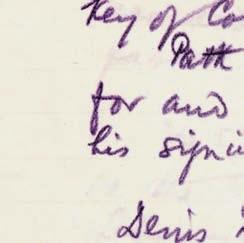 Key of Co
Path
for and
his signi
Denis